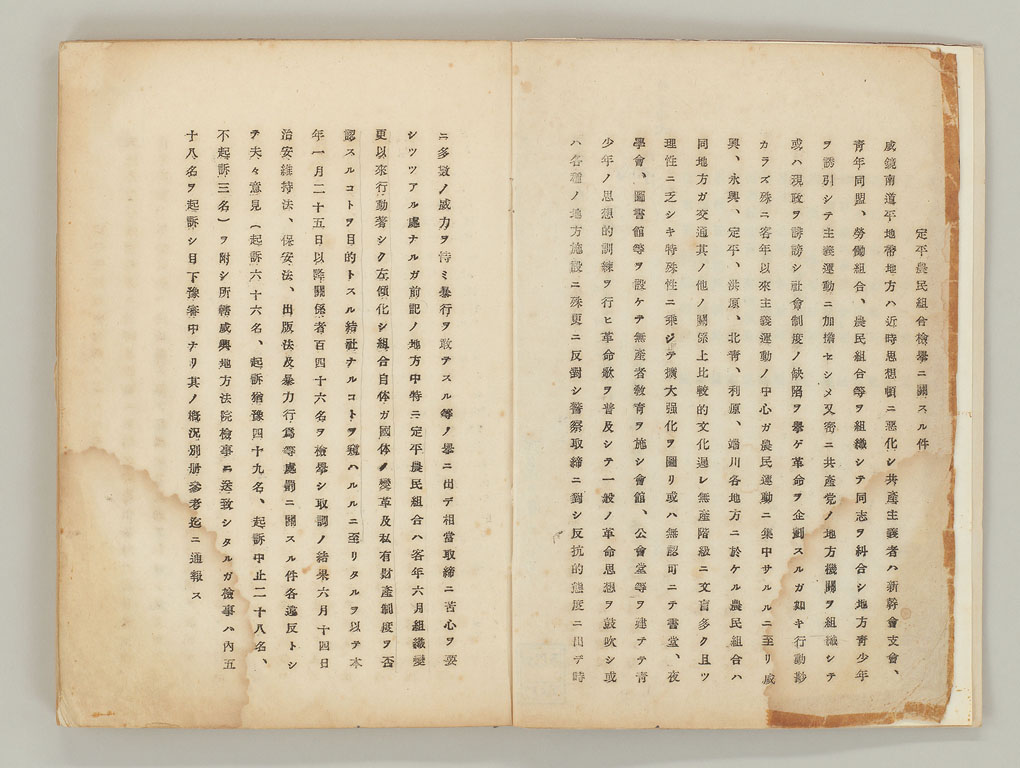 定平農民組合檢擧ニ關スル件
咸鏡南道平地帶地方ハ近時思想頓ニ惡化シ共產主義者ハ新幹會支會、
靑年同盟、勞働組合、農民組合等ヲ組織シテ同志ヲ糾合シ地方靑少年
ヲ誘引シテ主義運動ニ加擔セシメ又密ニ共產党ノ地方機關ヲ組織シテ
或ハ現政ヲ誹謗シ社會制度ノ缺陷ヲ擧ゲ革命ヲ企劃スルガ如キ行動尠
カラズ殊ニ客年以來主義運動ノ中心ガ農民運動ニ集中サルルニ至リ咸
興、永興、定平、洪原、北靑、利原、端川各地方ニ於ケル農民組合ハ
同地方ガ交通其ノ他ノ關係上比較的文化遲レ無產階級ニ文盲多ク且ツ
理性ニ乏シキ特殊性ニ乘ジテ擴大强化ヲ圖リ或ハ無認可ニテ書堂、夜
學會、圖書館等ヲ設ケテ無產者敎育ヲ施シ會館、公會堂等ヲ建テテ靑
少年ノ思想的訓練ヲ行ヒ革命歌ヲ普及シテ一般ノ革命思想ヲ鼓吹シ或
ハ各種ノ地方施設ニ殊更ニ反對シ警察取締ニ對シ反抗的態度ニ出デ時
ニ多數ノ威力ヲ恃ミ暴行ヲ敢テスル等ノ擧ニ出デ相當取締ニ苦心ヲ要
シツツアル處ナルガ前記ノ地方中特ニ定平農民組合ハ客年六月組織變
更以來行動著シク左傾化シ組合自体ガ國体ノ變革及私有財產制度ヲ否
認スルコトヲ目的トスル結社ナルコトヲ窺ハルルニ至リタルヲ以テ本
年一月二十五日以降關係者百四十六名ヲ檢擧シ取調ノ結果六月十四日
治安維持法、保安法、出版法及暴力行爲等處罰ニ關スル件各違反トシ
テ夫々意見（起訴六十六名、起訴猶豫四十九名、起訴中止二十八名、
不起訴三名）ヲ附シ所轄咸興地方法院檢事ニ送致シタルガ檢事ハ內五
十八名ヲ起訴シ目下豫審中ナリ其ノ槪況別册參考迄ニ通報ス